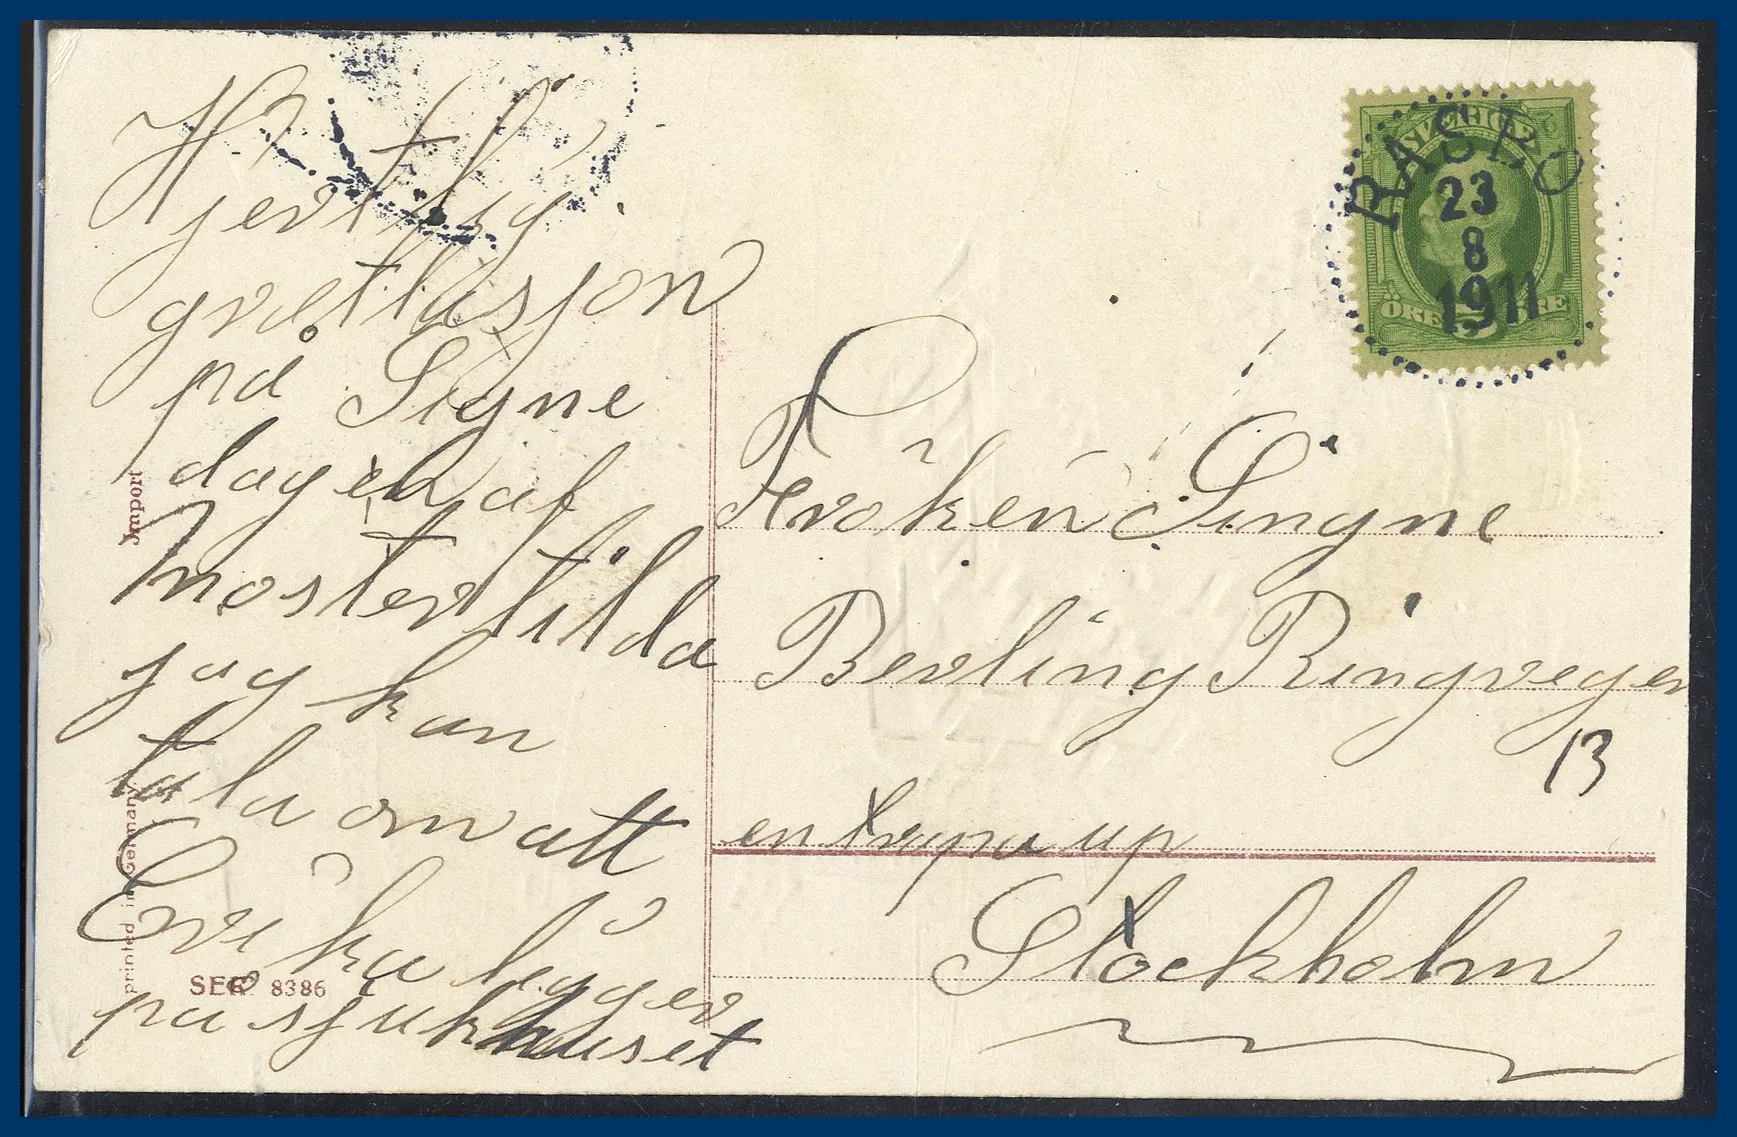 Hjertlig
gratlasjon
på Signe
dagen af
Moster tilda
jag kan
tala om att
Erika ligger
på sjukhuset
Import
Printed in Germany
SER. 8386
SVERIGE
ÖRE 5 ÖRE
RASBO
23
8
1911
Fröken Singne
Berling Ringvegen
13
en trapa up
Stockholm